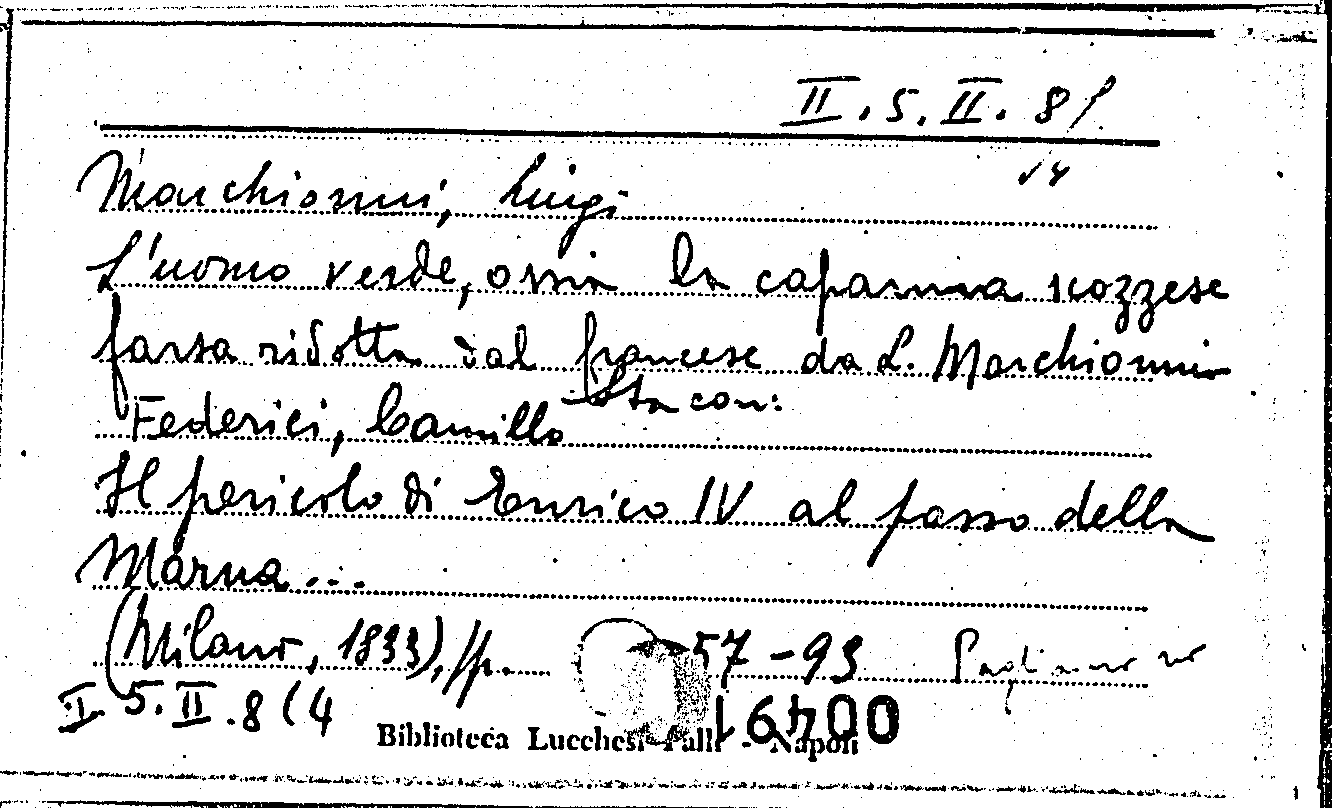 II.5.II.8/
14
Marchionni, Luigi
L'uomo verde, ossia la capanna scozzese
farsa ridotta dal francese da L. Marchionni
Sta con:
Federici, Camillo
Il pericolo di Enrico IV al passo della
Marna...
(Milano, 1833), pp. 57-93
I.5.II.8(4
Biblioteca Lucchesi Palli - Napoli